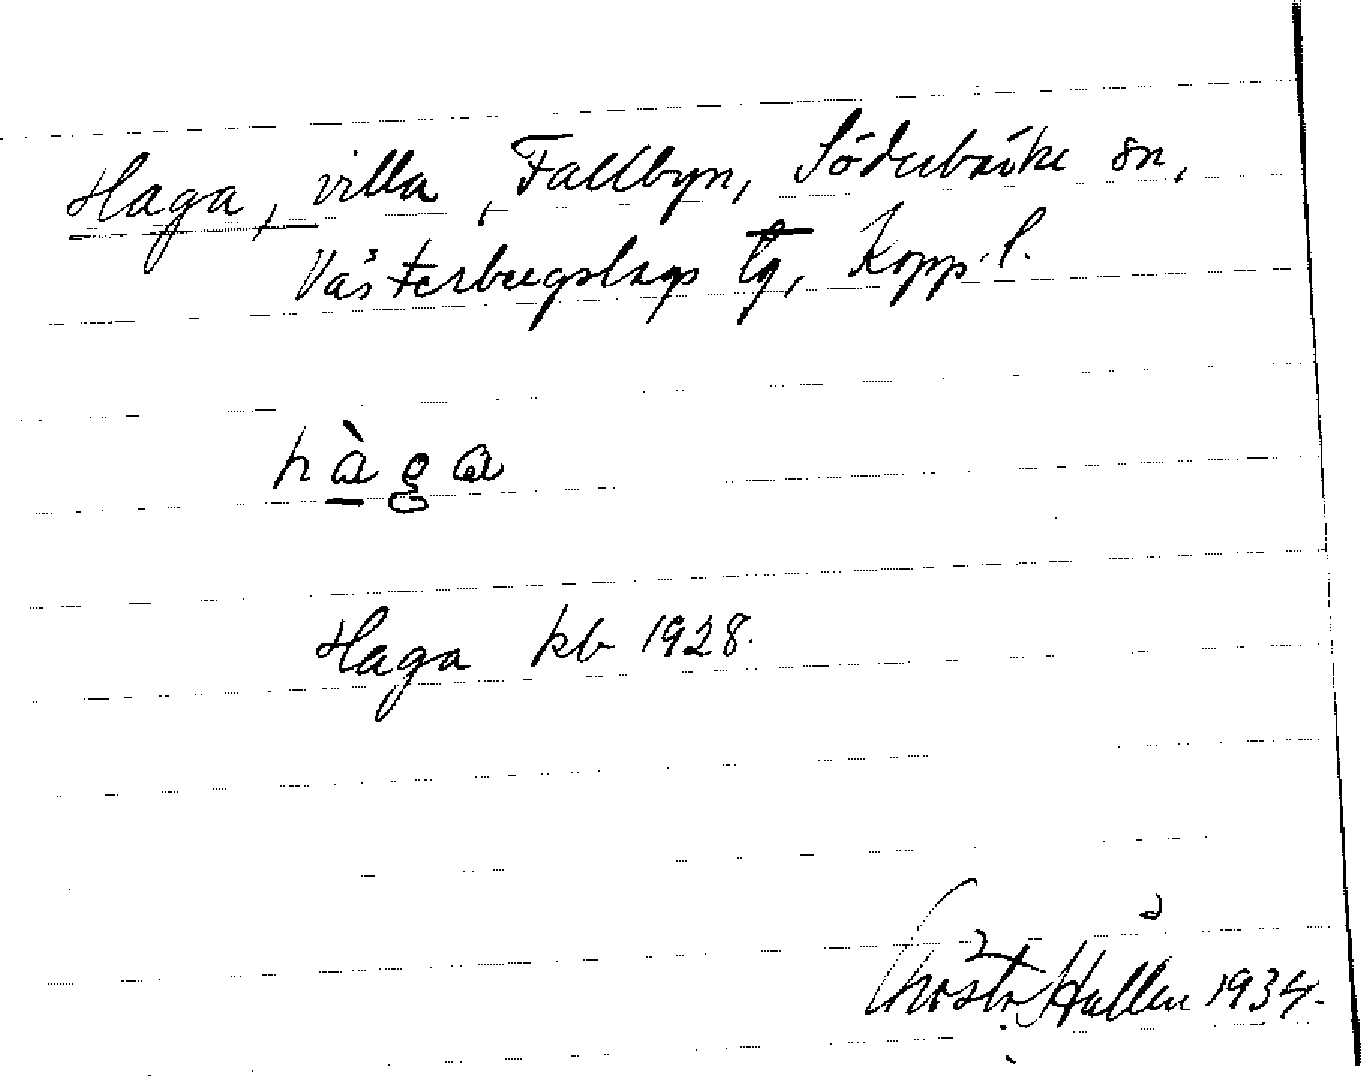 Haga, villa, Fallbyn, Söderbärke sn,
Västerbergslags tg, Kopp. l.
hàga
Haga kb 1928.
Gösta Hallén 1934.